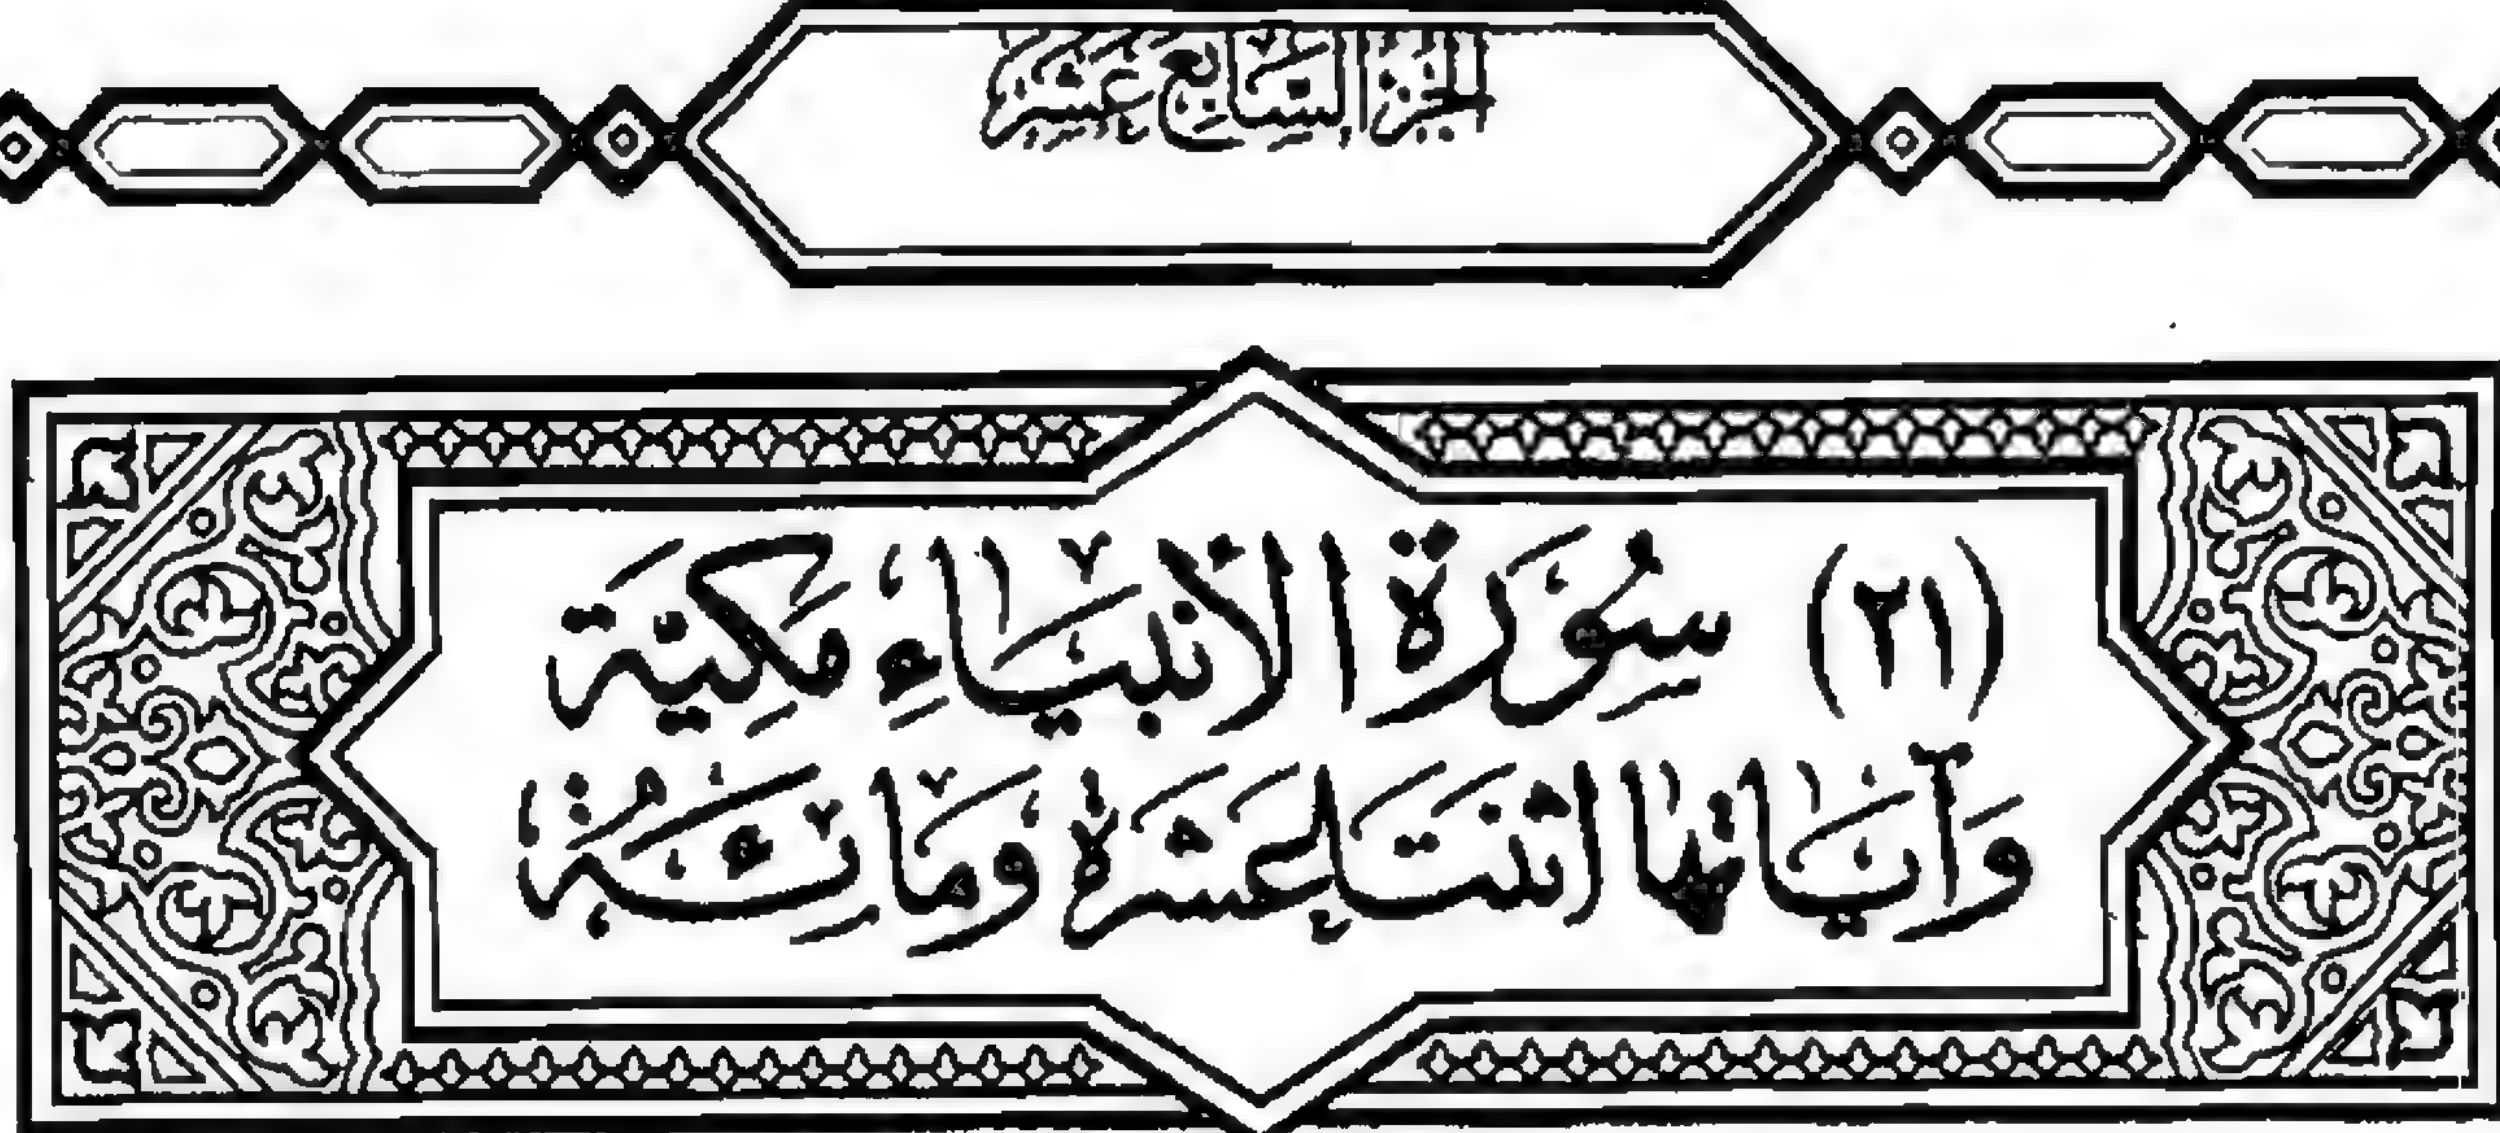 الجزء السابع عشر
(٢١) سُوْرَةُ الْاَنْبِيَآءِ مَكِّيَّةٌ
وَاٰيَاتُهَا اثْنَتَا عَشْرَةَ وَمِائَةٌ